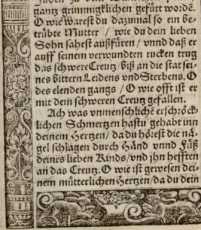 gang grimmigklichen gefürt worde͂.
O wie warest du dazumal so ein be-
trübte Mutter / wie du dein lieben
Sohn sahest außfüren / vnnd daß er
auff seinem verwundten rucken trug
das schwere Creutz / biß an die stat sei-
nes bittern Leidens vnd Sterbens. O
des elenden gangs / O wie offt ist er
mit dem schweren Creutz gefallen.
Ach was vnmenschliche erschröck-
lichen Schmertzen hastu gehabt inn
deinem Hertzen / da du hörest die nä-
gel schlagen durch Händ vnnd Füß
deines lieben Kinds / vnd jhn hefften
an das Creutz. O wie ist gewesen dei-
nem mütterlichen Hertzen / da du dein